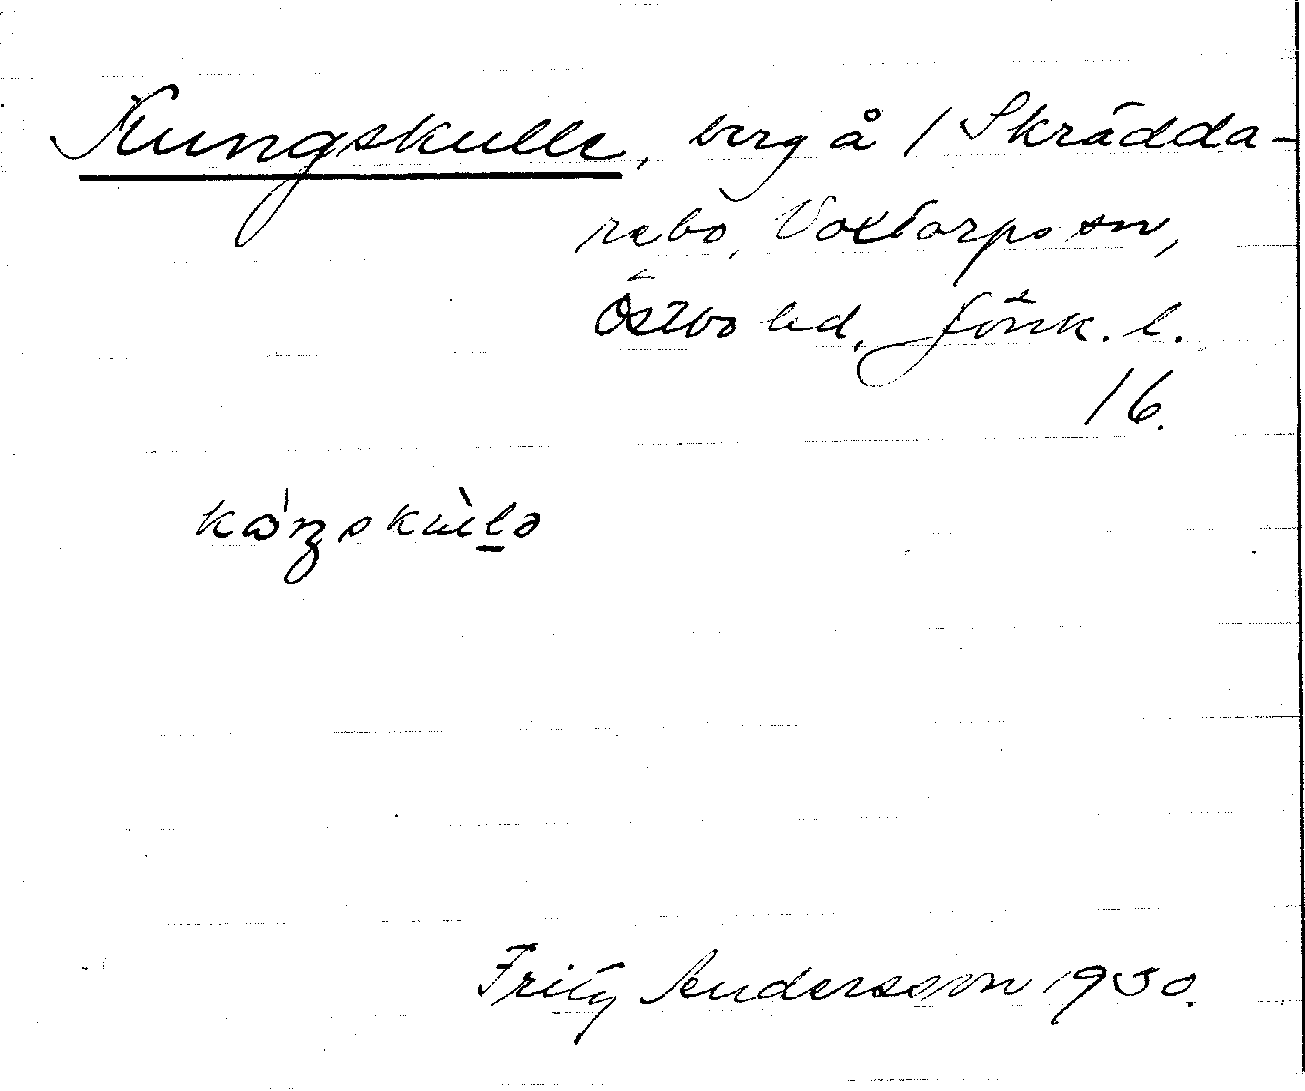 Kungskulle, berg å 1 Skrädda-
rebo, Voxtorps sn,
Östbo hd, Jönk. l.
16.
Fritz Andersson 1930.